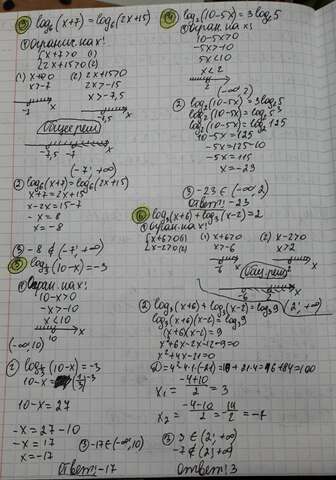 ③ log₆(x+7)=log₆(2x+15)
① Огранич. на x!
{x+7>0 (1)
{2x+15>0 (2)
(1) x+7>0 (2) 2x+15>0
x>-7 2x>-15
x>-7,5
-7 x -7,5 x
Общее реш
-7,5 -7 x
(-7; +∞)
② log₆(x+7)=log₆(2x+15)
x+7=2x+15
x-2x=15-7
-x=8
x=-8
③ -8 ∉ (-7; +∞)
⑤ (10-x)=-3
① Огран. на x:
10-x>0
-x>-10
x<10
10 x
(-∞; 10)
② (10-x)=-3
10-x=
10-x=27
-x=27-10
-x=17
x=-17
③ -17∈(-∞; 10)
Ответ: -17
④ log₂(10-5x)=3log₂5
① Огран. на x:
10-5x>0
-5x>-10
5x<10
x<2
2 x
(-∞; 2)
② log₂(10-5x)=3log₂5
log₂(10-5x)=log₂5³
log₂(10-5x)=log₂125
10-5x=125
-5x=125-10
-5x=115
x=-23
③ -23 ∈ (-∞; 2)
Ответ: -23
⑥ log₃(x+6)+log₃(x-2)=2
① Огран. на x!
{x+6>0 (1) (1) x+6>0 (2) x-2>0
{x-2>0 (2) x>-6 x>2
Общ. реш
-6 2 x
(2; +∞)
② log₃(x+6)+log₃(x-2)=log₃9
log₃(x+6)(x-2)=log₃9
(x+6)(x-2)=9
x²+6x-2x-12-9=0
x²+4x-21=0
D=4²-4·1·(-21)=16+21·4=16+84=100
x₁=(-4+10)/2=3
x₂=(-4-10)/2=14/2=-7
③ 3 ∈ (2; +∞)
-7 ∉ (2; +∞)
Ответ: 3